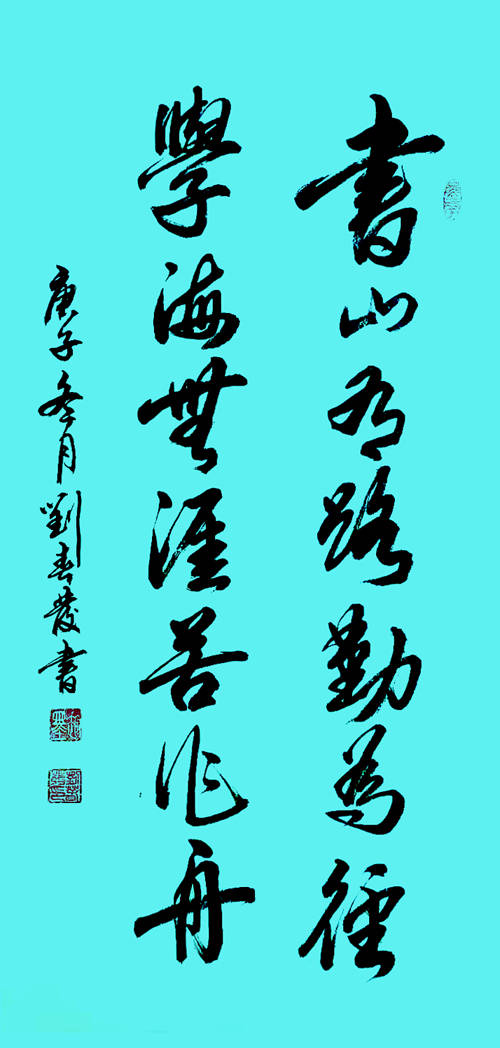 書山有路勤為徑
學海無涯苦作舟
庚子冬月劉春發書